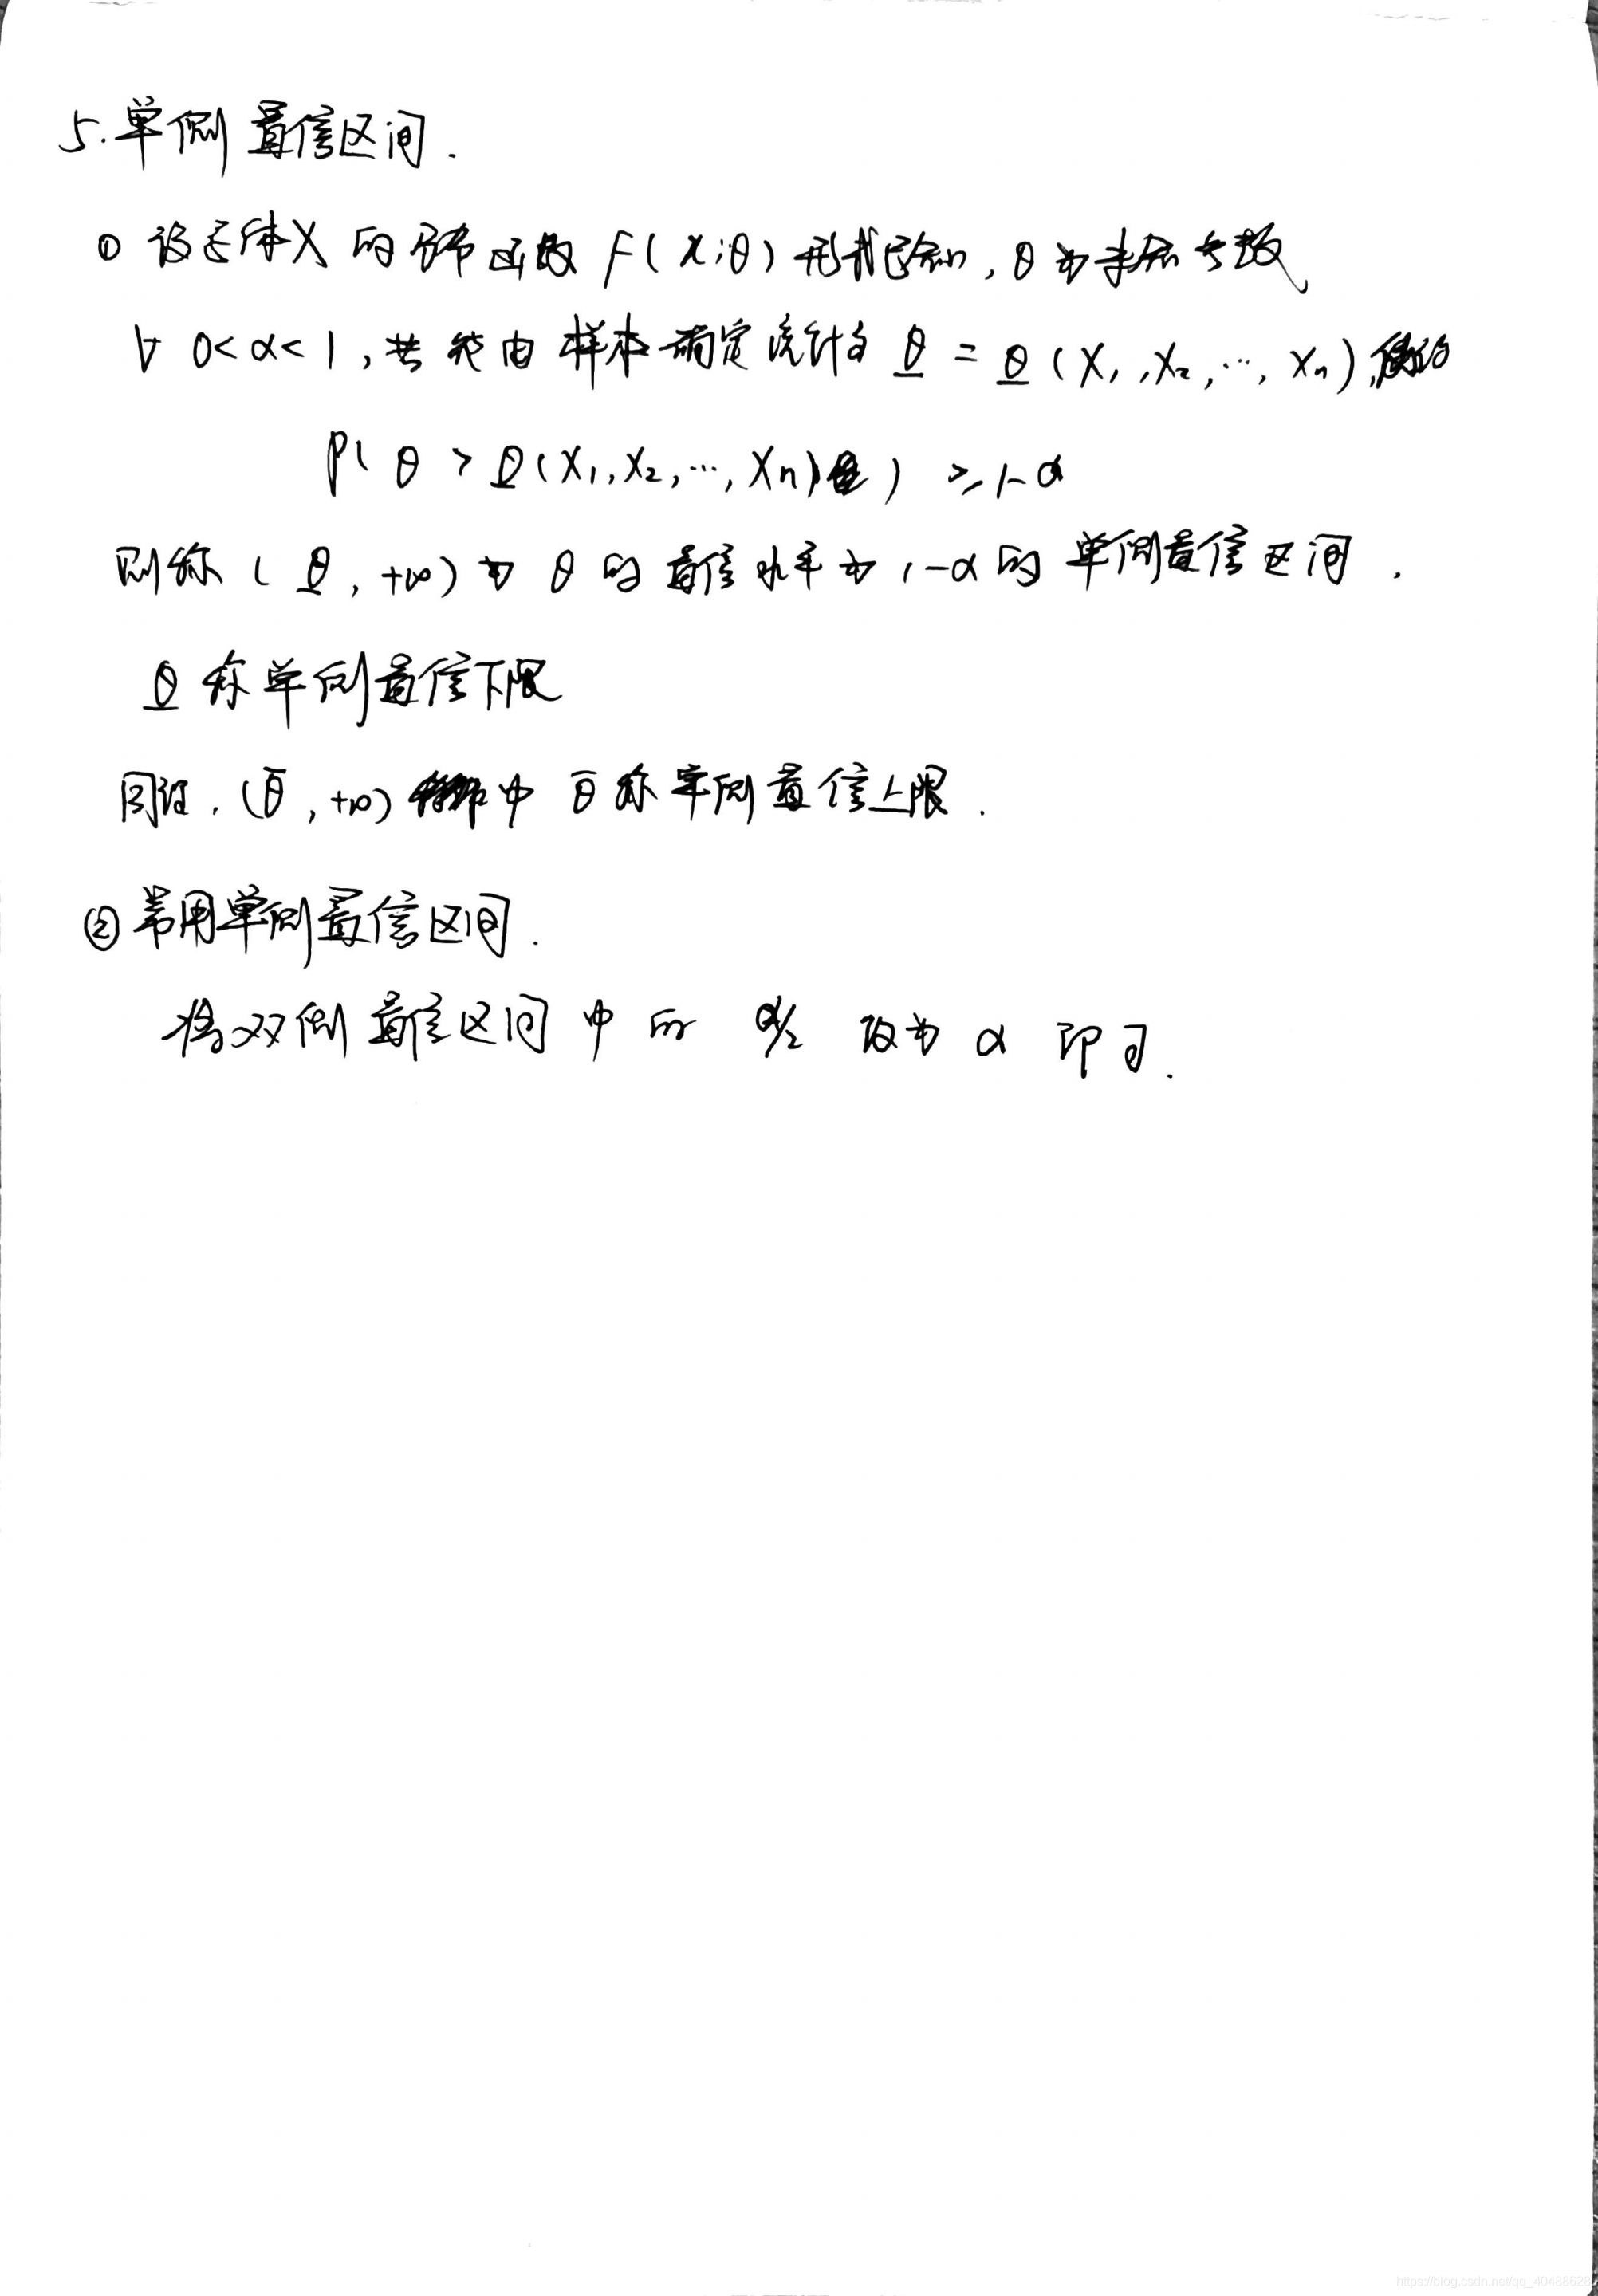 5.单侧置信区间.
① 设总体X的分布函数 F(x;θ)形式已知, θ为未知参数
∀ 0<α<1, 若能由样本确定统计量 θ̲ = θ̲(X₁,X₂,…,Xₙ), 使得
P( θ > θ̲(X₁,X₂,…,Xₙ) ) ≥ 1-α
则称 ( θ̲, +∞) 为 θ 的置信水平为 1-α 的 单侧置信区间.
θ̲ 称单侧置信下限
同理, (θ̅, +∞) 中 θ̅ 称单侧置信上限.
② 常用单侧置信区间.
将双侧置信区间中的 α/2 改为 α 即可.